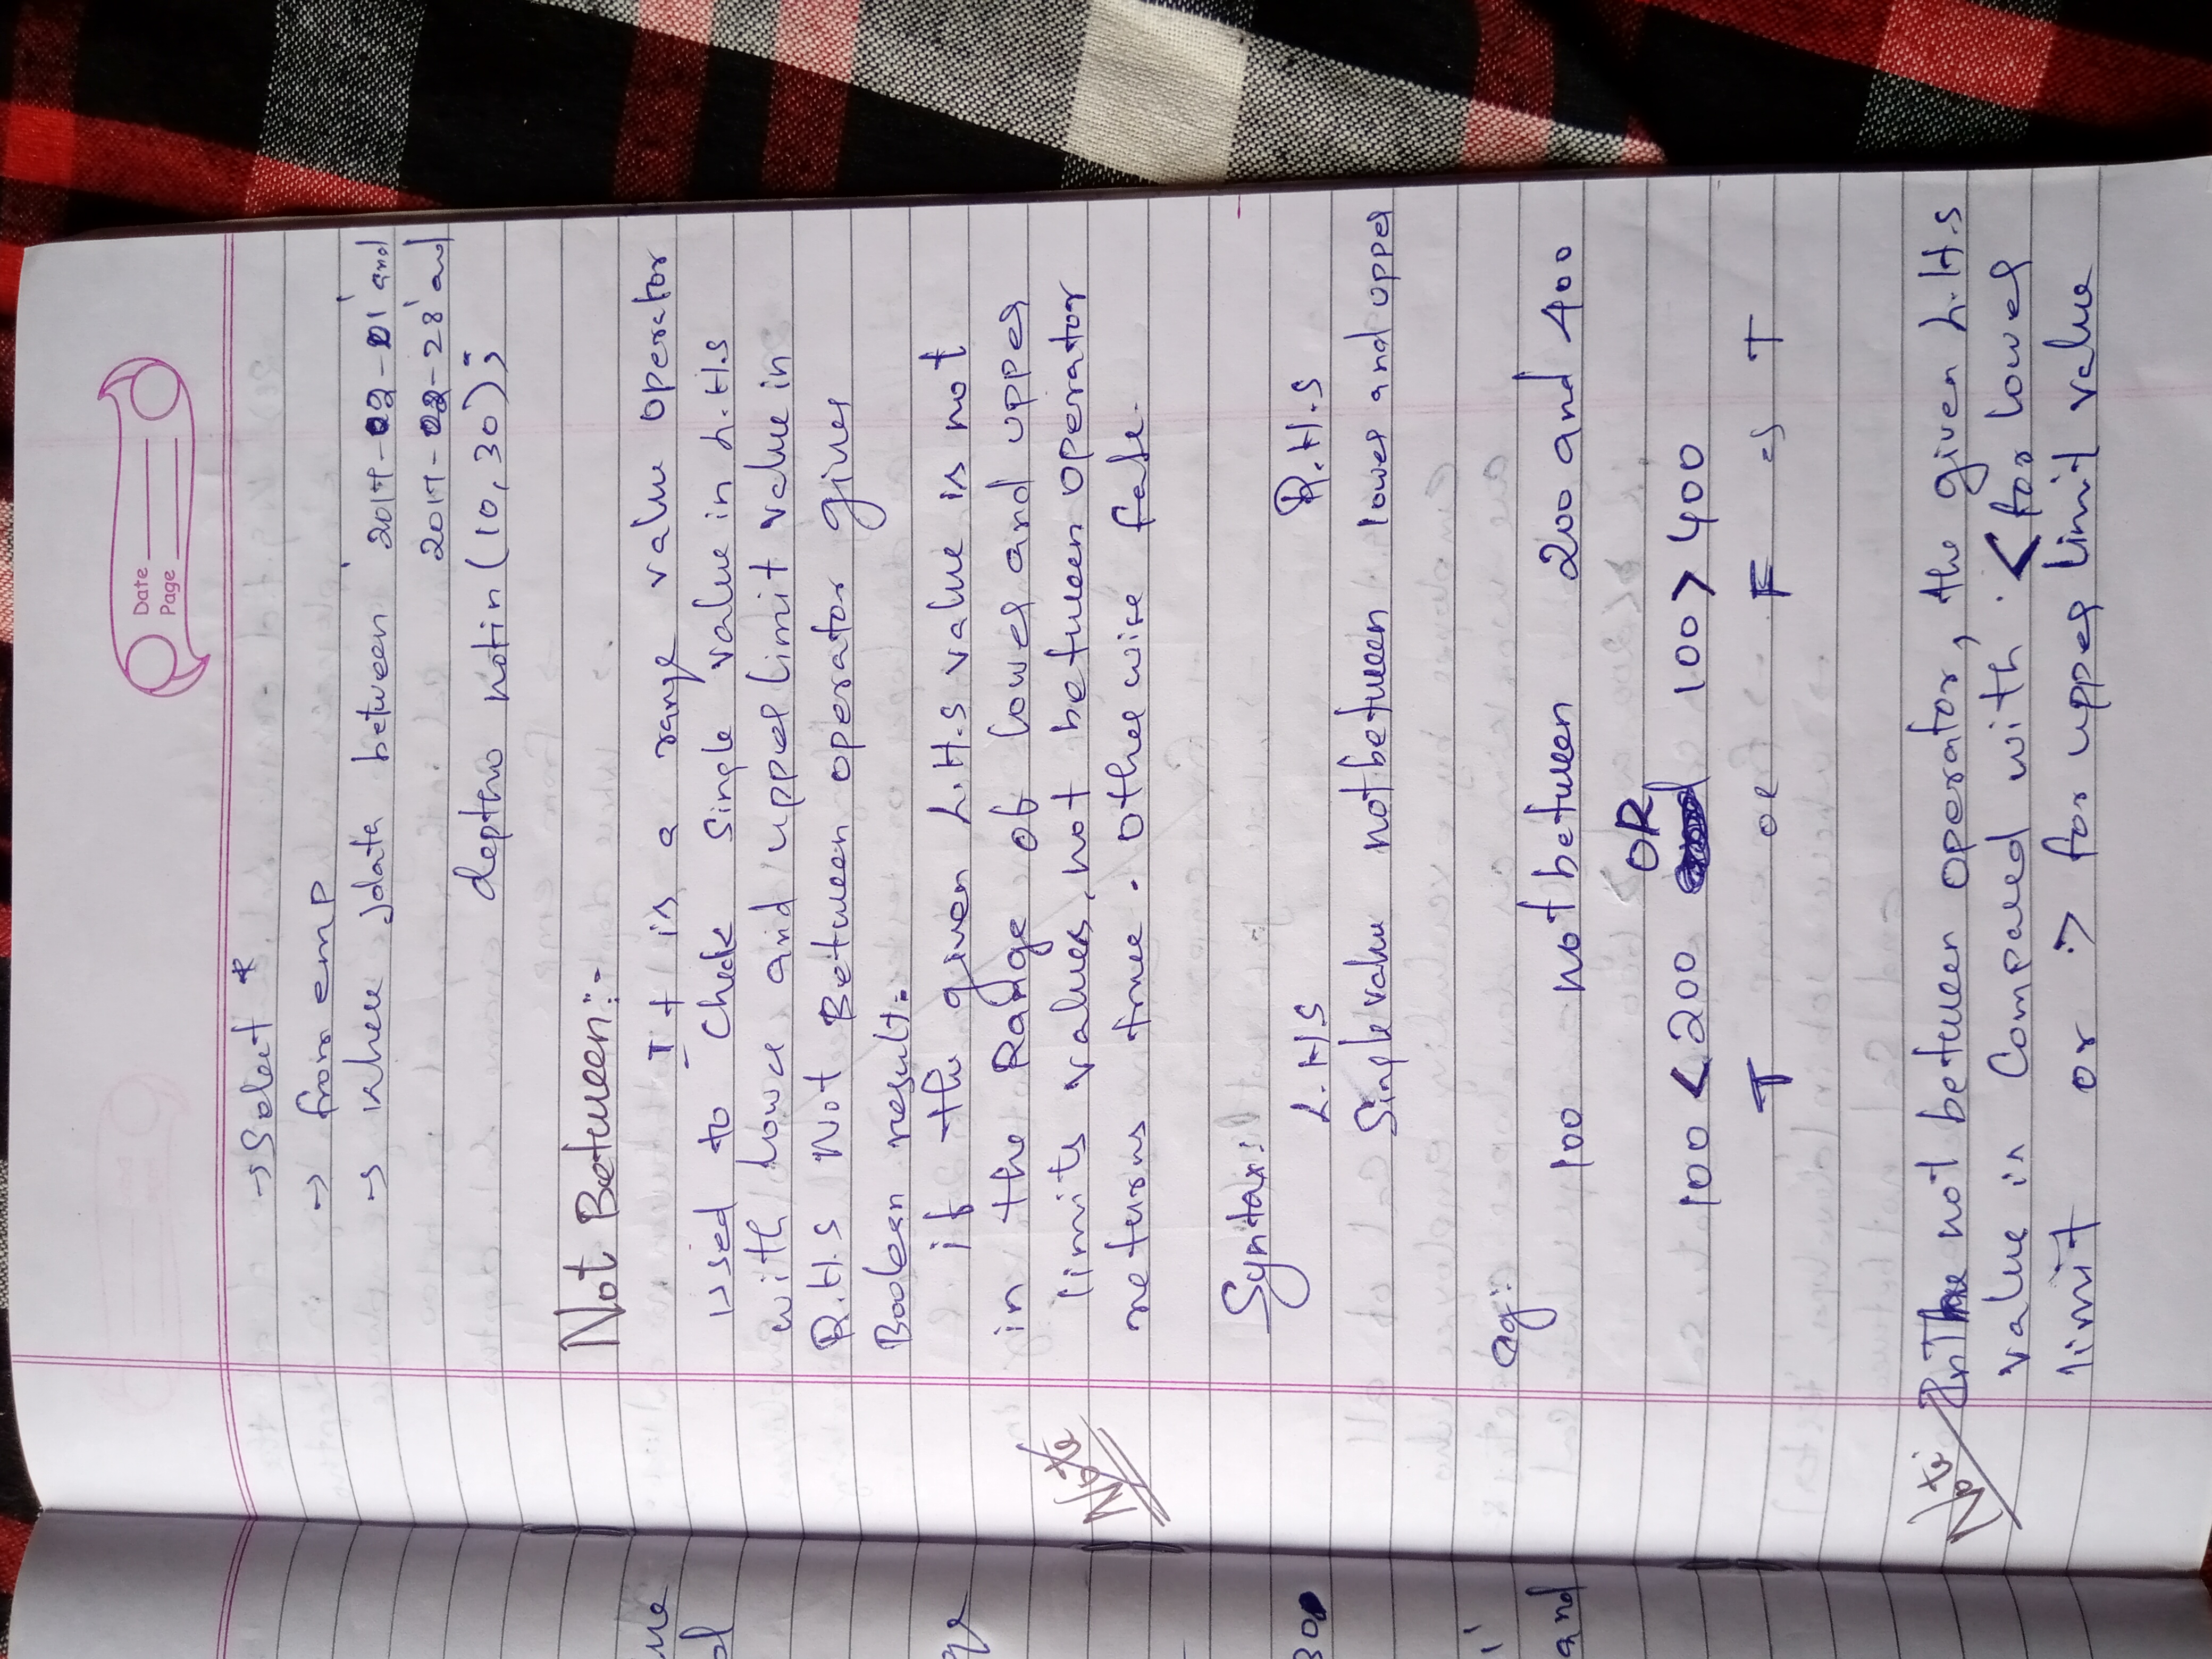 Date
Page
→ Select *
→ from emp
→ where jdate between '2017-02-01' and
'2017-02-28' and
deptno notin (10, 30);
Not Between:-
It is a range value operator
used to check single value in L.H.S
with lower and upper limit value in
R.H.S Not Between operator gives
Boolean result.
if the given L.H.S value is not
in the Range of lower and upper
Note
limits values, not between operator
returns true. Otherwise false.
Syntax:
L.H.S R.H.S
Single value notbetween lower and upper
eg:
100 notbetween 200 and 400
OR
100 < 200 100 > 400
T OR F => T
Note: In The not between operator, the given L.H.S
value is Compared with < for lower
limit or > for upper limit value
ue
300
and